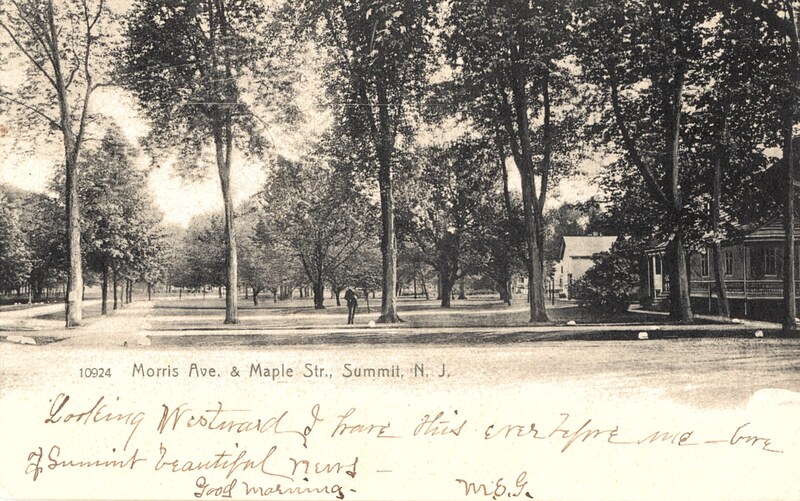 10924 Morris Ave. & Maple Str., Summit, N. J.
Looking Westward I have this ever before me – one
of Summit beautiful views –
Good morning – M.E.G.